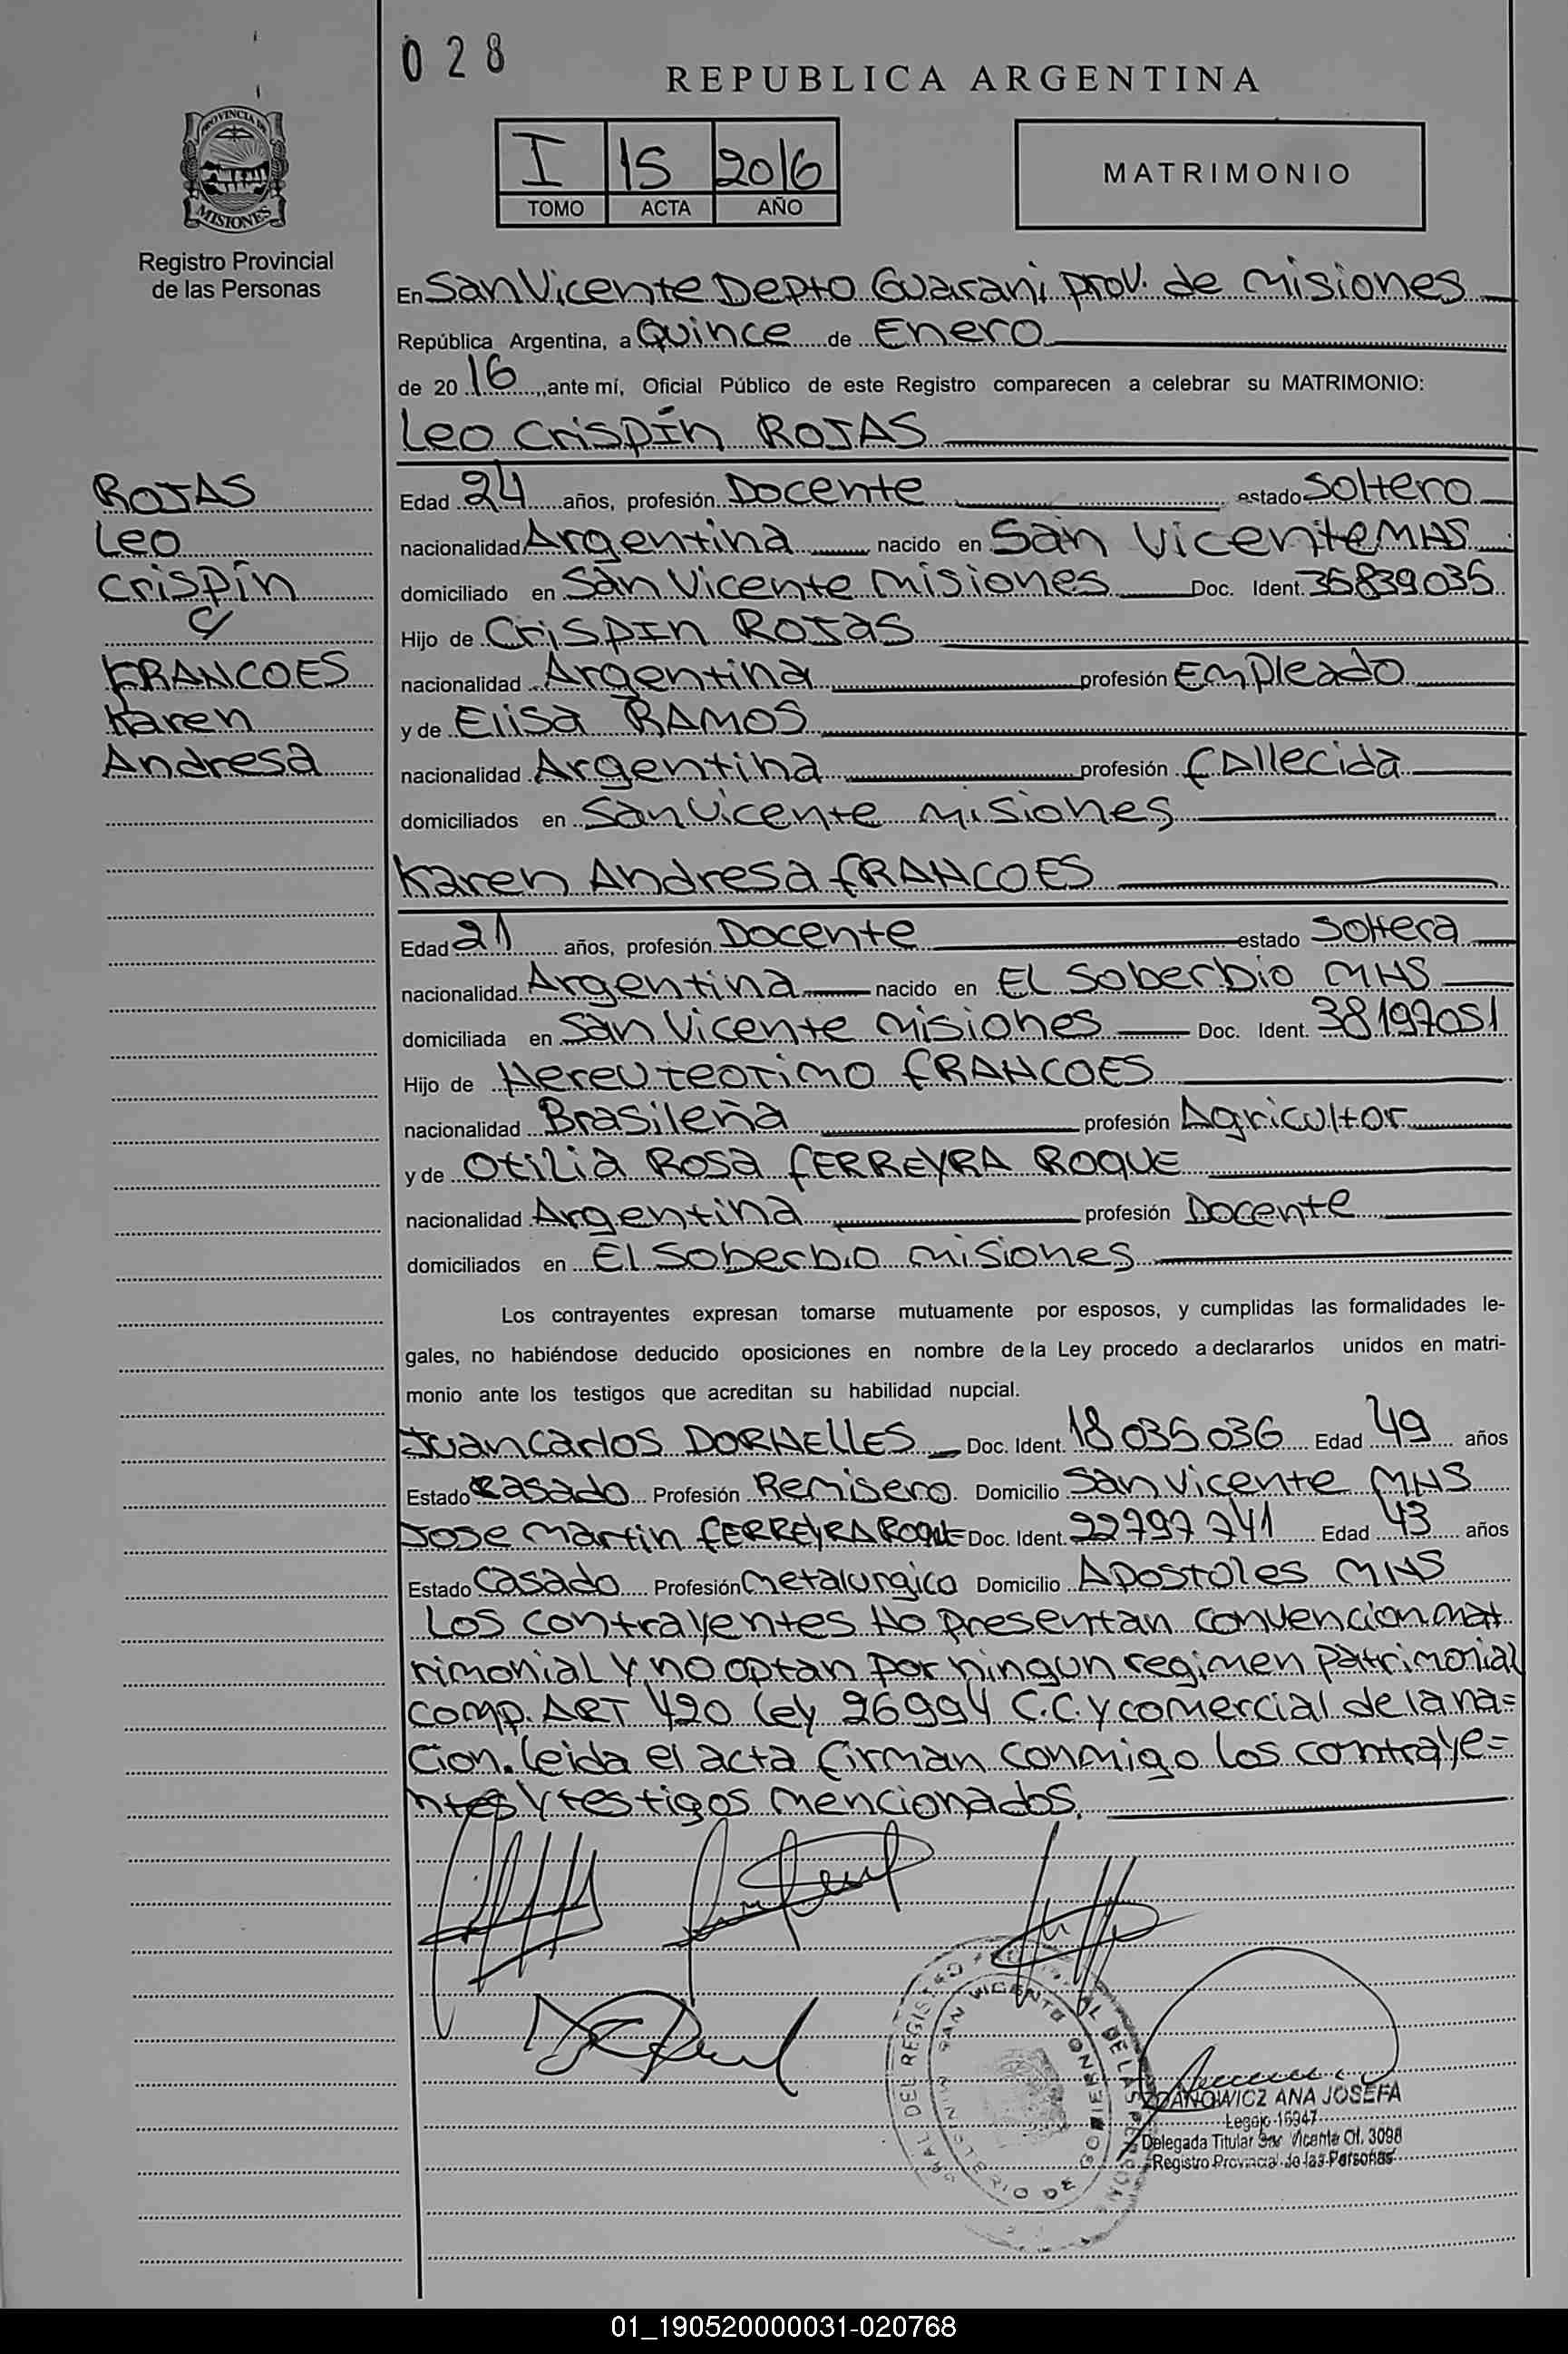 028
REPUBLICA ARGENTINA
I 15 2016
TOMO ACTA AÑO
MATRIMONIO
PROVINCIA DE
MISIONES
Registro Provincial
de las Personas
En San Vicente Depto Guarani prov. de Misiones
República Argentina, a Quince de Enero
de 20 16, ante mí, Oficial Público de este Registro comparecen a celebrar su MATRIMONIO:
Leo Crispín ROJAS
ROJAS
Leo
Crispín
c/
FRANCOES
Karen
Andresa
Edad 24 años, profesión Docente estado Soltero
nacionalidad Argentina nacido en San Vicente MNS
domiciliado en San Vicente Misiones Doc. Ident. 35.839.035
Hijo de Crispin ROJAS
nacionalidad Argentina profesión Empleado
y de Elisa RAMOS
nacionalidad Argentina profesión fallecida
domiciliados en San Vicente Misiones
Karen Andresa FRANCOES
Edad 21 años, profesión Docente estado Soltera
nacionalidad Argentina nacido en El Soberbio MNS
domiciliada en San Vicente Misiones Doc. Ident. 38197051
Hijo de Nereu Teotimo FRANCOES
nacionalidad Brasileña profesión Agricultor
y de Otilia Rosa FERREYRA ROQUE
nacionalidad Argentina profesión Docente
domiciliados en El Soberbio Misiones
Los contrayentes expresan tomarse mutuamente por esposos, y cumplidas las formalidades le-
gales, no habiéndose deducido oposiciones en nombre de la Ley procedo a declararlos unidos en matri-
monio ante los testigos que acreditan su habilidad nupcial.
Juan Carlos DORNELLES Doc. Ident. 18.035.036 Edad 49 años
Estado Casado Profesión Remisero Domicilio San Vicente MNS
Jose Martin FERREYRA ROQUE Doc. Ident. 22797741 Edad 43 años
Estado Casado Profesión Metalurgico Domicilio Apostoles MNS
Los contrayentes No presentan convencion mat
rimonial y no optan por ningun regimen patrimonial
comp. ART 420 Ley 26994 C.C. y comercial de la na=
cion. leida el acta firman conmigo los contraye=
ntes y testigos mencionados.
ANA JOSEFA
Legajo 15947
Delegada Titular San Vicente Of. 3098
Registro Provincial de las Personas
01_190520000031-020768